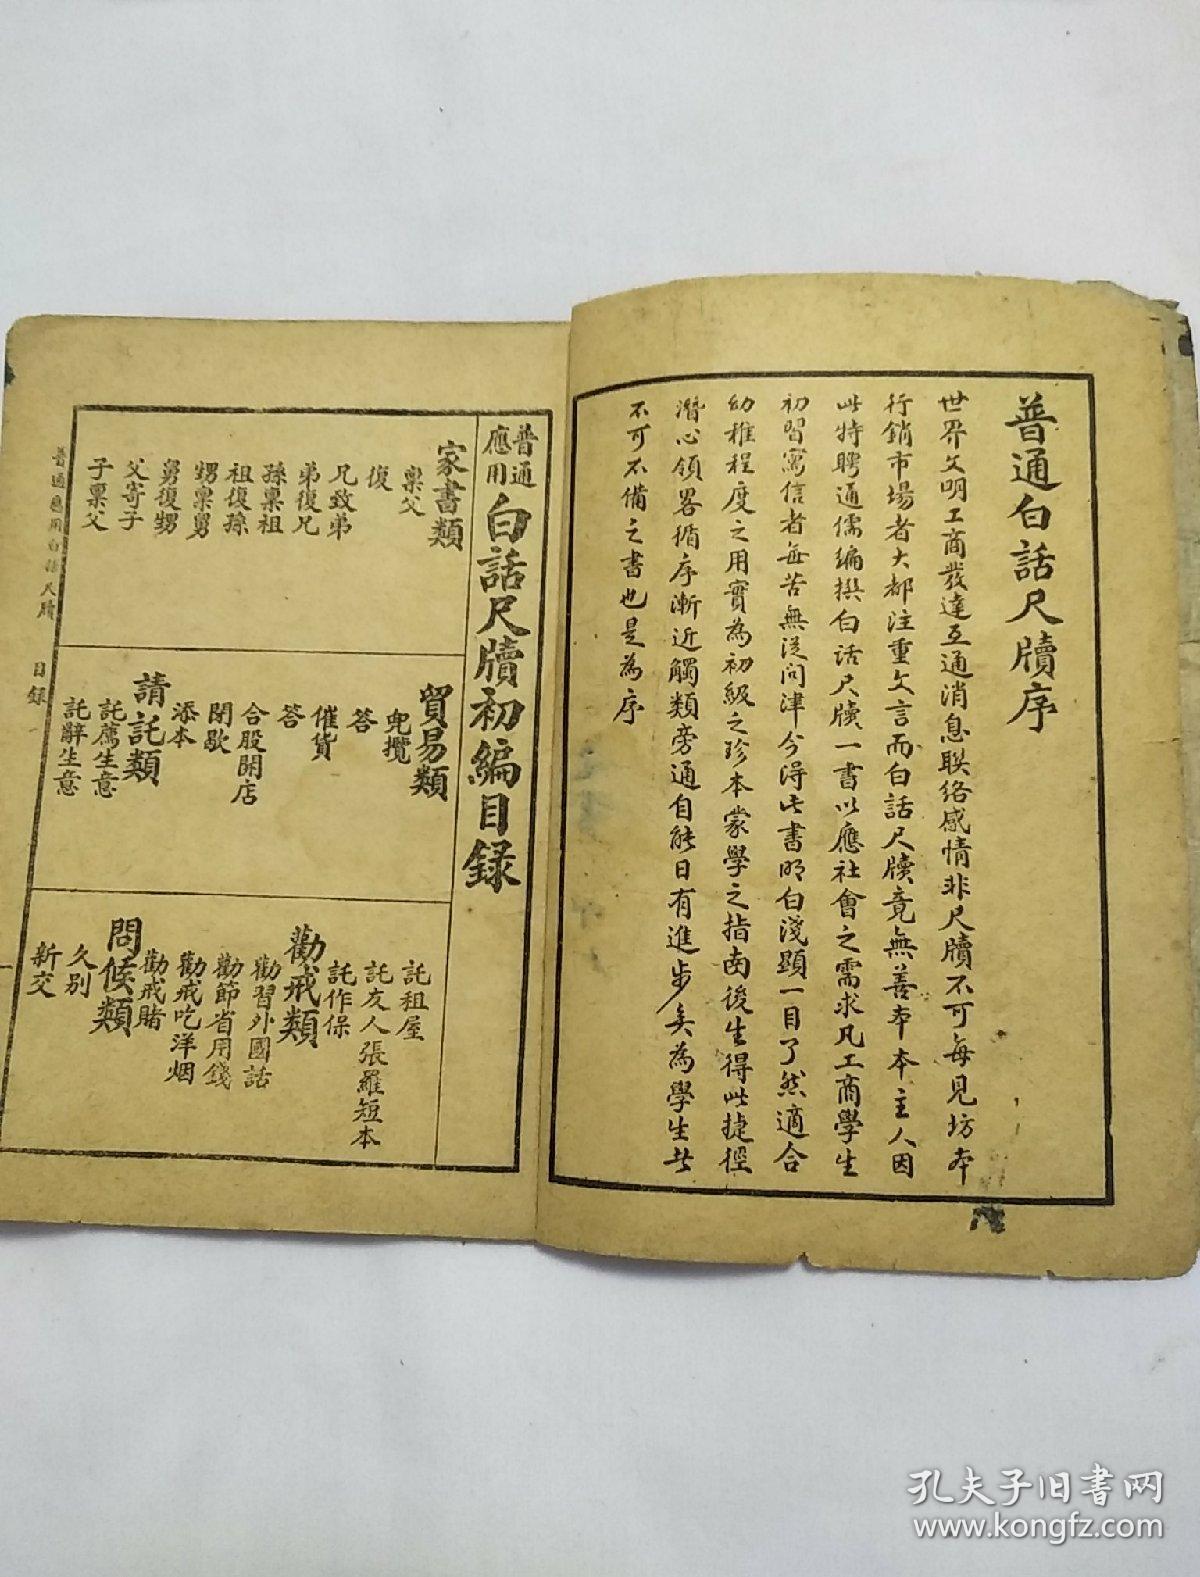 普通白話尺牘序
世界文明工商發達互通消息聯络感情非尺牘不可每見坊本
行銷市場者大都注重文言而白話尺牘竟無善本本主人因
此特聘通儒編撰白话尺牘一書以應社會之需求凡工商學生
初習寫信者每苦無從问津今得此書明白淺顯一目了然適合
幼稚程度之用實為初級之珍本蒙學之指南後生得此捷徑
潛心領畧循序漸近觸類旁通自能日有進步矣為學生者
不可不備之書也是為序
普通應用白話尺牘初編目録
家書類
稟父
復
兄致弟
弟復兄
孫稟祖
祖復孫
甥稟舅
舅復甥
父寄子
子稟父
貿易類
兜攬
答
催貨
答
合股開店
閉歇
添本
請託類
託薦生意
託辭生意
託租屋
託友人張羅短本
託作保
勸戒類
勸習外國話
勸節省用錢
勸戒吃洋烟
勸戒賭
問候類
久别
新交
普通應用白話尺牘
目錄
孔夫子旧书网
www.kongfz.com